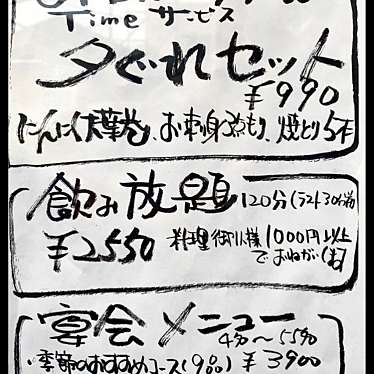 Time サービス
夕ぐれセット
¥990
にんにく大葉巻、お刺身3点もり、焼とり5本
飲み放題 120分(ラスト30分前)
¥2550 料理御1人様1000円以上
でおねがい
宴会メニュー
・季節のおすすめコース(9品) ¥3900